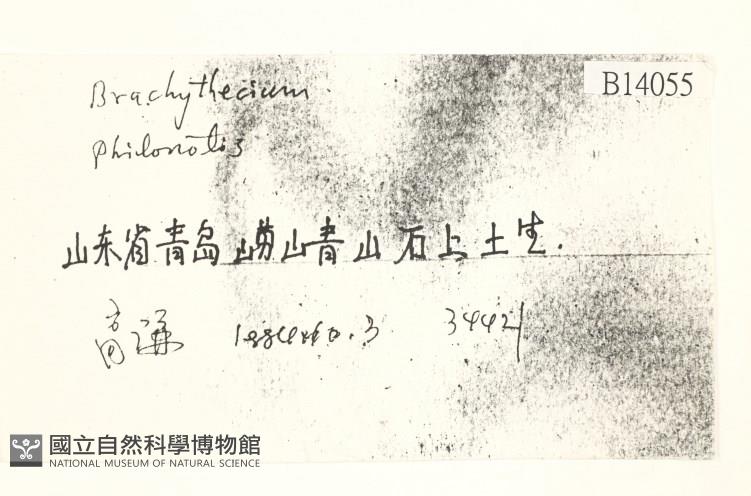 B14055
Brachythecium
Philonotis
山东省青岛崂山青山石上土生.
高谦 3442
國立自然科學博物館
NATIONAL MUSEUM OF NATURAL SCIENCE